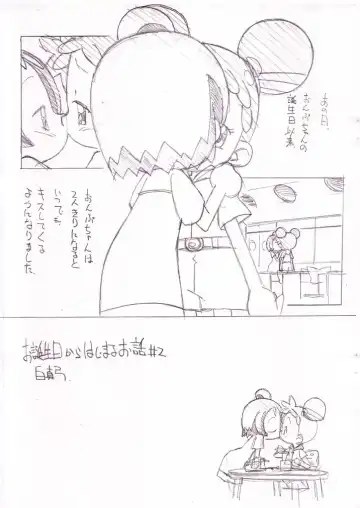 あの日、
おんぷちゃんの
誕生日以来
おんぷちゃんは
二人きりになると
いつでも、
キスしてくる
ようになりました。
お誕生日からはじまるお話#2
白真弓